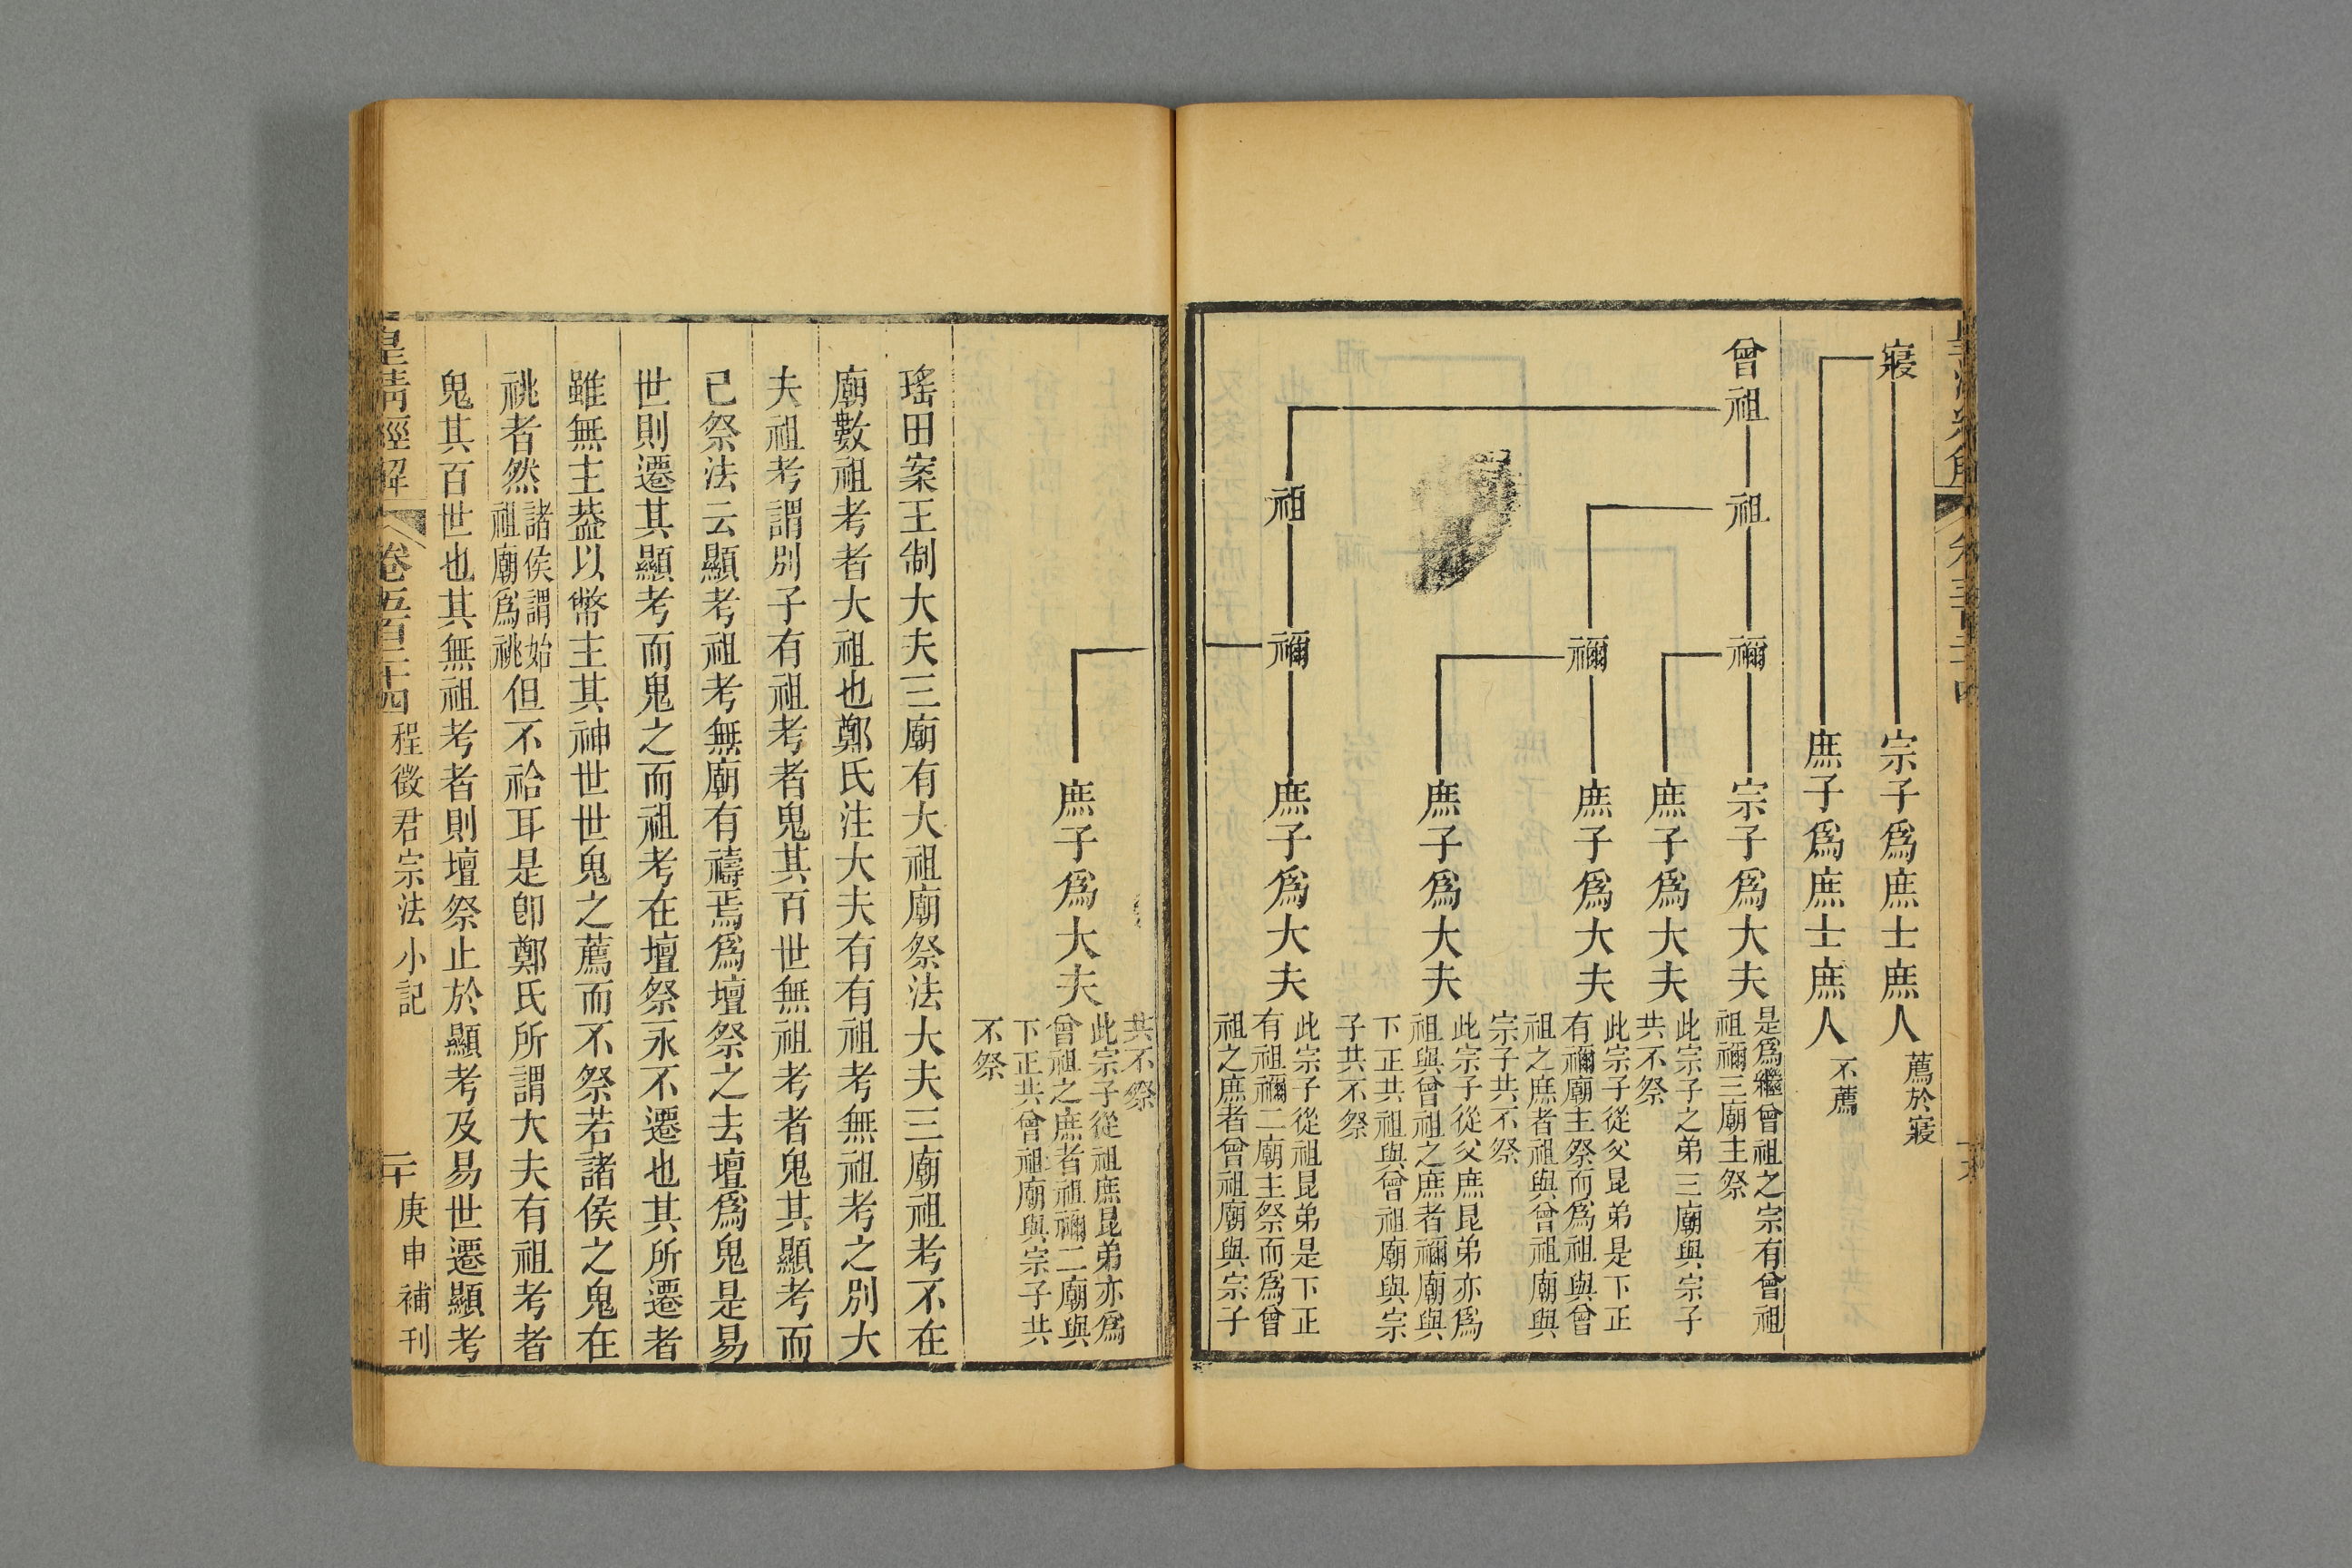 寢
宗子爲庶士庶人
薦於寢
庶子爲庶士庶人
不薦
曾祖
祖
禰
宗子爲大夫
是爲繼曾祖之宗有曾祖
祖禰三廟主祭
庶子爲大夫
此宗子之弟三廟與宗子
共不祭
禰
庶子爲大夫
此宗子從父昆弟是下正
有禰廟主祭而爲祖與曾
祖之庶者祖與曾祖廟與
宗子共不祭
庶子爲大夫
此宗子從父庶昆弟亦爲
祖與曾祖之庶者禰廟與
下正共祖與曾祖廟與宗
子共不祭
祖
禰
庶子爲大夫
此宗子從祖昆弟是下正
有祖禰二廟主祭而爲曾
祖之庶者曾祖廟與宗子
共不祭
庶子爲大夫
此宗子從祖庶昆弟亦爲
曾祖之庶者祖禰二廟與
下正共曾祖廟與宗子共
不祭
瑤田案王制大夫三廟有大祖廟祭法大夫三廟祖考不在
廟數祖考者大祖也鄭氏注大夫有有祖考無祖考之別大
夫祖考謂別子有祖考者鬼其百世無祖考者鬼其顯考而
已祭法云顯考祖考無廟有禱焉爲壇祭之去壇爲鬼是易
世則遷其顯考而鬼之而祖考在壇祭永不遷也其所遷者
雖無主葢以幣主其神世世鬼之薦而不祭若諸侯之鬼在
祧者然諸侯謂始祖廟爲祧但不祫耳是卽鄭氏所謂大夫有祖考者
鬼其百世也其無祖考者則壇祭止於顯考及易世遷顯考
皇清經解
卷五百二十四
程徵君宗法小記
二十
庚申補刊